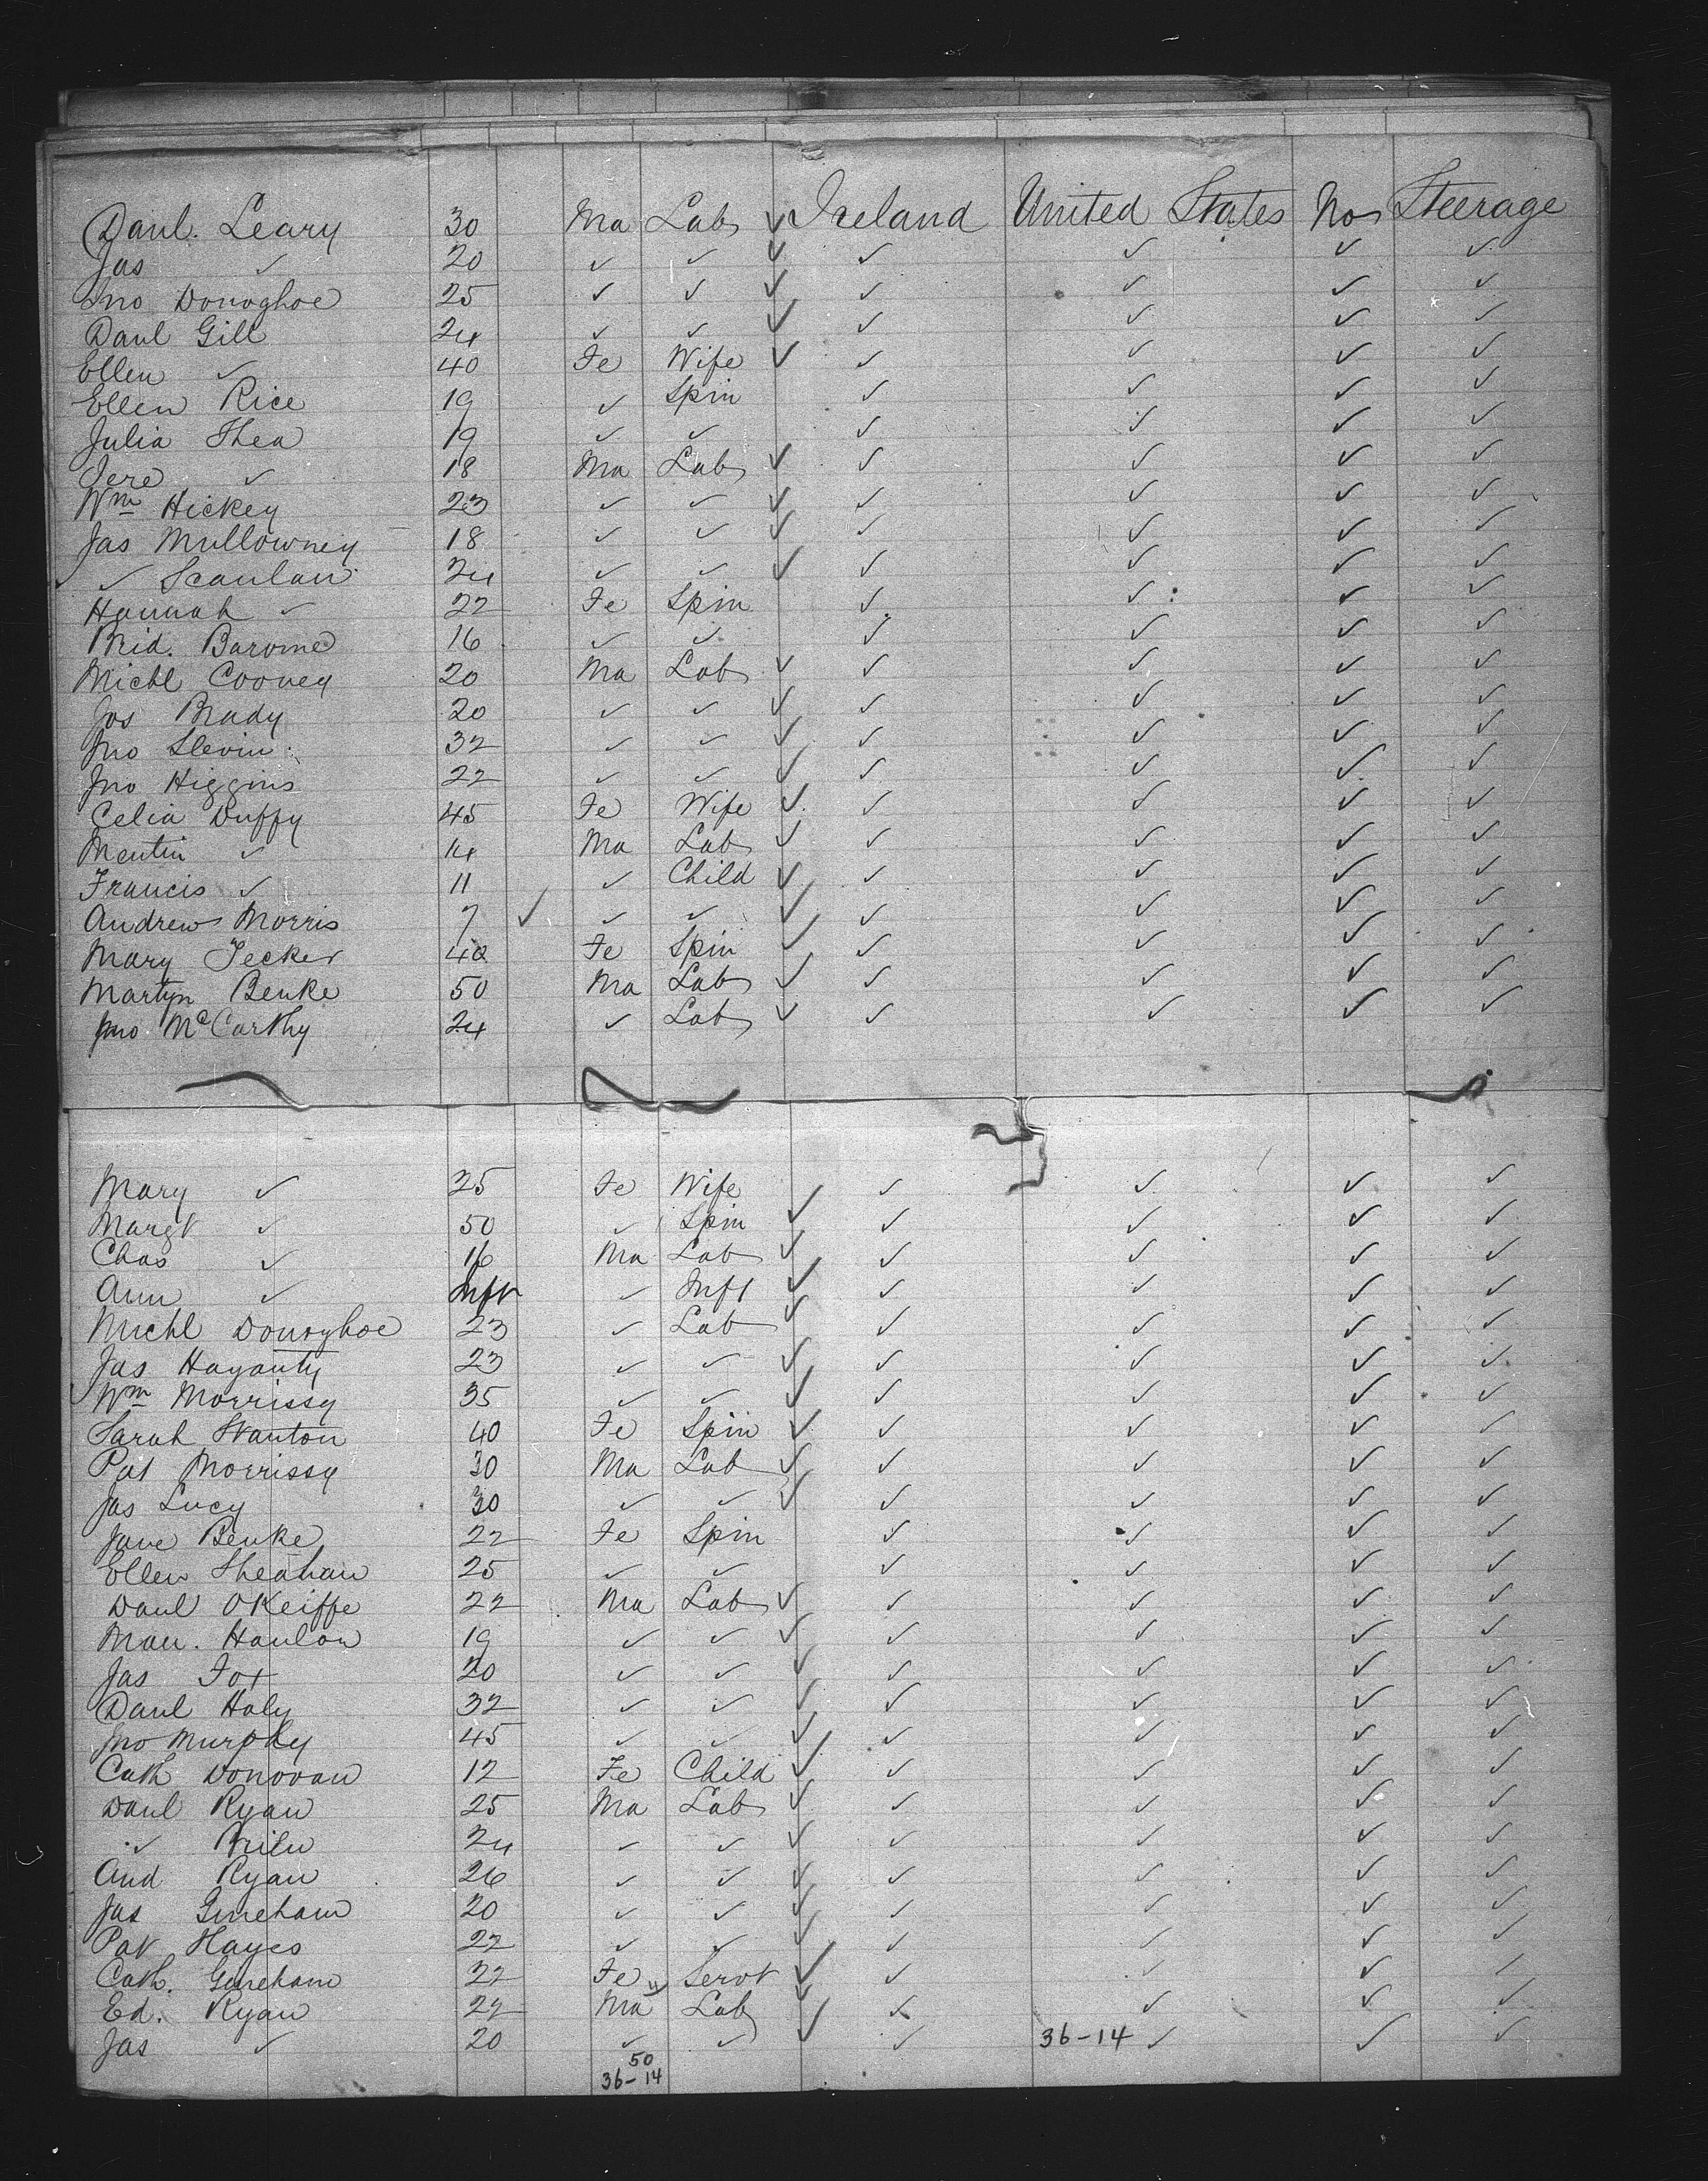 Danl. Leary 30 Ma Lab ✓ Ireland United States No Steerage
Jas ✓ 20 ✓ ✓ ✓ ✓ ✓ ✓ ✓
Jno Donoghoe 25 ✓ ✓ ✓ ✓ ✓ ✓ ✓
Danl Gill 24 ✓ ✓ ✓ ✓ ✓ ✓ ✓
Ellen ✓ 40 Fe Wife ✓ ✓ ✓ ✓ ✓
Ellen Rice 19 ✓ Spin ✓ ✓ ✓ ✓
Julia Shea 19 ✓ ✓ ✓ ✓ ✓ ✓
Jere ✓ 18 Ma Lab ✓ ✓ ✓ ✓ ✓
Wm Hickey 23 ✓ ✓ ✓ ✓ ✓ ✓ ✓
Jas Mullowney 18 ✓ ✓ ✓ ✓ ✓ ✓ ✓
✓ Scanlan 24 ✓ ✓ ✓ ✓ ✓ ✓ ✓
Hannah ✓ 22 Fe Spin ✓ ✓ ✓ ✓
Brid. Barome 16 ✓ ✓ ✓ ✓ ✓ ✓
Michl Cooney 20 Ma Lab ✓ ✓ ✓ ✓ ✓
Jos Brady 20 ✓ ✓ ✓ ✓ ✓ ✓ ✓
Jno Slevin 32 ✓ ✓ ✓ ✓ ✓ ✓ ✓
Jno Higgins 22 ✓ ✓ ✓ ✓ ✓ ✓ ✓
Celia Duffy 45 Fe Wife ✓ ✓ ✓ ✓ ✓
Mentin ✓ 14 Ma Lab ✓ ✓ ✓ ✓ ✓
Francis ✓ 11 ✓ Child ✓ ✓ ✓ ✓ ✓
Andrew Morris 7 ✓ ✓ ✓ ✓ ✓ ✓ ✓ ✓
Mary Tecker 40 Fe Spin ✓ ✓ ✓ ✓ ✓
Martyn Benke 50 Ma Lab ✓ ✓ ✓ ✓ ✓
Jno McCarthy 24 ✓ Lab ✓ ✓ ✓ ✓ ✓
Mary ✓ 35 Fe Wife ✓ ✓ ✓ ✓ ✓
Margt ✓ 50 ✓ Spin ✓ ✓ ✓ ✓ ✓
Chas ✓ 16 Ma Lab ✓ ✓ ✓ ✓ ✓
Ann ✓ Inft ✓ Inft ✓ ✓ ✓ ✓ ✓
Michl Donoghoe 23 ✓ Lab ✓ ✓ ✓ ✓ ✓
Jas Haganty 23 ✓ ✓ ✓ ✓ ✓ ✓ ✓
Wm Morrissy 35 ✓ ✓ ✓ ✓ ✓ ✓ ✓
Sarah Stanton 40 Fe Spin ✓ ✓ ✓ ✓ ✓
Pat Morrissy 30 Ma Lab ✓ ✓ ✓ ✓ ✓
Jas Lucy 30 ✓ ✓ ✓ ✓ ✓ ✓ ✓
Jane Benke 22 Fe Spin ✓ ✓ ✓ ✓
Ellen Sheahan 25 ✓ ✓ ✓ ✓ ✓ ✓
Danl OKeiffe 22 Ma Lab ✓ ✓ ✓ ✓ ✓
Mau. Hanlon 19 ✓ ✓ ✓ ✓ ✓ ✓ ✓
Jas Fox 20 ✓ ✓ ✓ ✓ ✓ ✓ ✓
Danl Haly 32 ✓ ✓ ✓ ✓ ✓ ✓ ✓
Jno Murphy 45 ✓ ✓ ✓ ✓ ✓ ✓ ✓
Cath Donovan 12 Fe Child ✓ ✓ ✓ ✓ ✓
Danl Ryan 25 Ma Lab ✓ ✓ ✓ ✓ ✓
✓ 24 ✓ ✓ ✓ ✓ ✓ ✓ ✓
And Ryan 26 ✓ ✓ ✓ ✓ ✓ ✓ ✓
Jas 20 ✓ ✓ ✓ ✓ ✓ ✓ ✓
Pat Hayes 22 ✓ ✓ ✓ ✓ ✓ ✓ ✓
Cath. 22 Fe Servt ✓ ✓ ✓ ✓ ✓
Ed. Ryan 22 Ma Lab ✓ ✓ ✓ ✓ ✓
Jas ✓ 20 ✓ ✓ ✓ ✓ 36-14 ✓ ✓ ✓
50
36-14